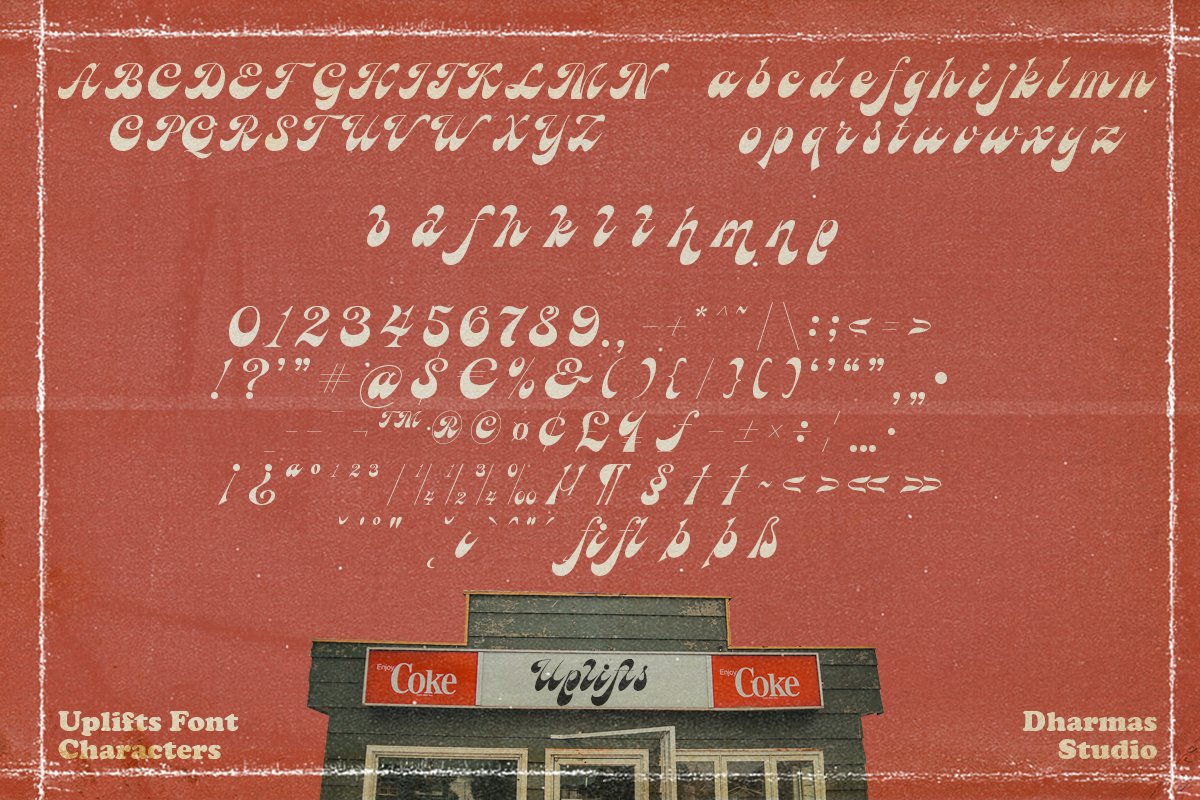 A B C D E F G H I J K L M N
O P Q R S T U V W X Y Z
a b c d e f g h i j k l m n
o p q r s t u v w x y z
b d f h k l l h m n p
0 1 2 3 4 5 6 7 8 9 . , - + * ^ ~ / | \ : ; < = >
! ? ' " # @ $ € % & ( ) { / } ( ) ‘ ’ “ ” , „ •
– — ¬ ™ ® © ¤ ¢ £ ¥ ƒ − ± × ÷ ¦ … ·
¡ ¿ ª º 1 2 3 / ¼ ½ ¾ ‰ µ ¶ § † ‡ ~ < > « »
fi fl þ Þ ß
Enjoy
Coke
Uplifts
Enjoy
Coke
Uplifts Font
Characters
Dharmas
Studio